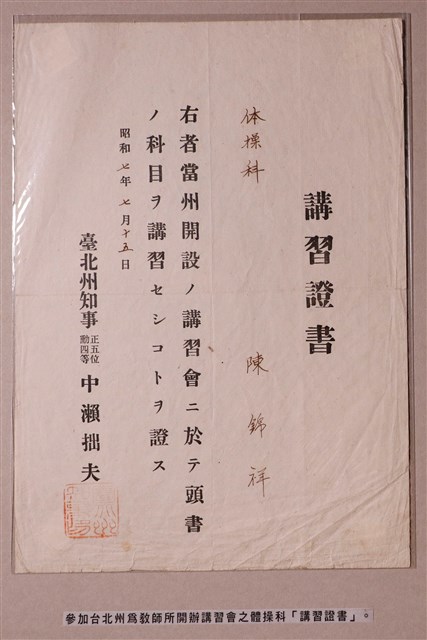 講習證書
体操科
陳錦祥
右者當州開設ノ講習會ニ於テ頭書
ノ科目ヲ講習セシコトヲ證ス
昭和七年七月十五日
臺北州知事正五位勳四等中瀨拙夫
參加台北州為教師所開辦講習會之體操科「講習證書」。